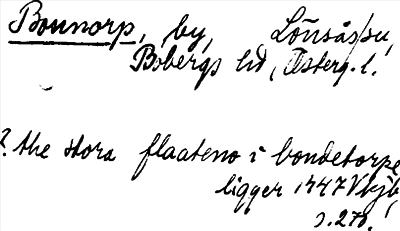 Bounorp, by, Lönsås sn,
Bobergs hd, Österg. l.
? the stora flaateno i bondetorpe
ligger 1447 Vhjb,
s. 270.